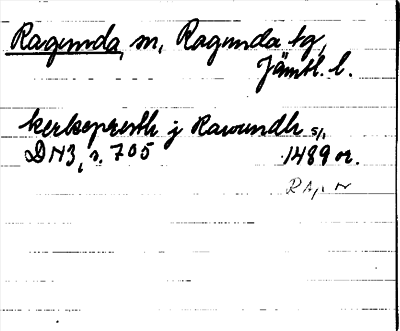 Ragunda, sn, Ragunda tg,
Jämtl. l.
kerkepresth j Rawundh s/,
DN3, s. 705 1489 or.